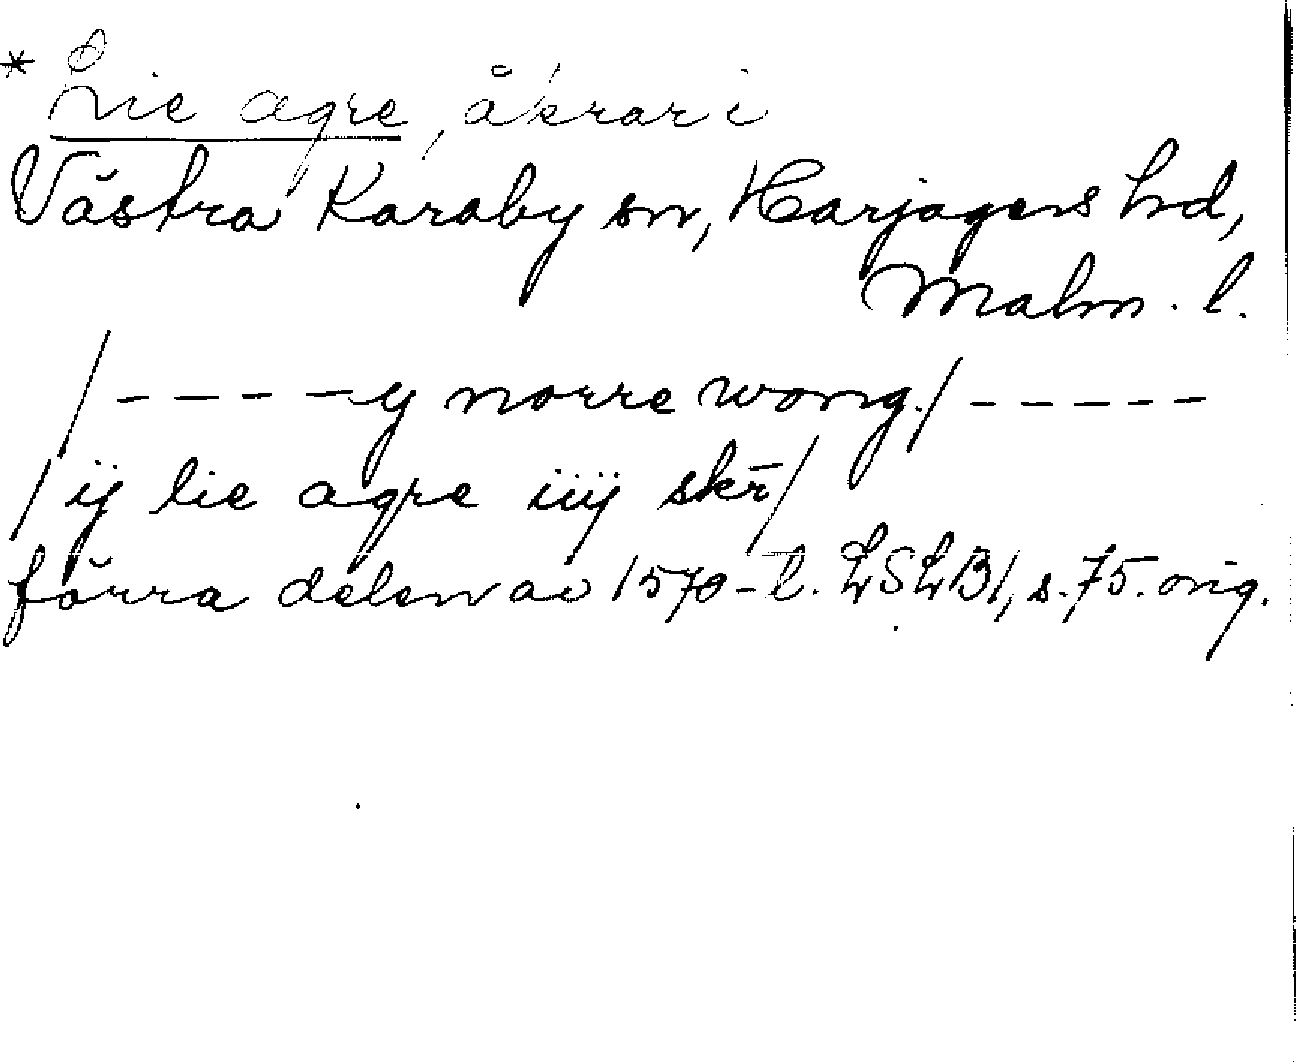 * Lie agre, åkrar i
Västra Karaby sn, Harjagers hd,
Malm. l.
/ - - - - y norre wong./ - - - - -
/ ij lie agre iiij skr̄/
förra delen av 1570-t. LSLB1, s. 75. orig.